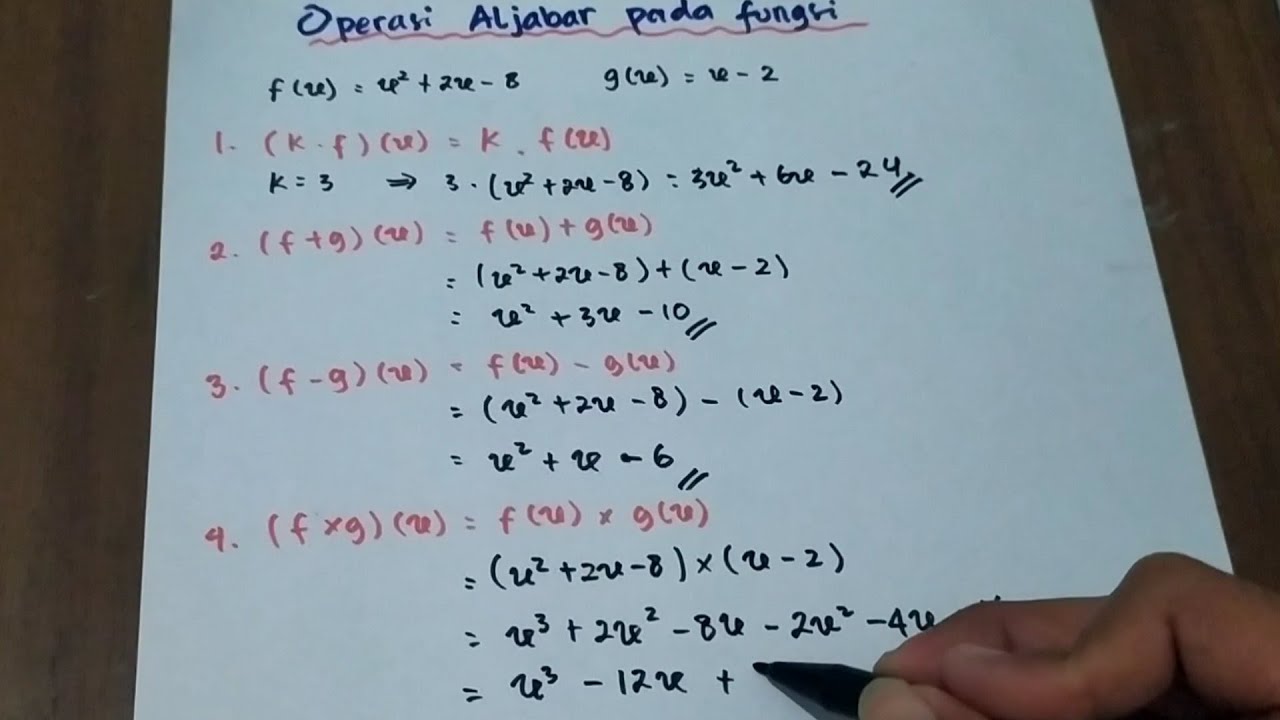 Operasi Aljabar pada fungsi
f(x) = x² + 2x - 8 g(x) = x - 2
1. (k . f)(x) = k . f(x)
k = 3 ⇒ 3 . (x² + 2x - 8) = 3x² + 6x - 24
2. (f + g)(x) = f(x) + g(x)
= (x² + 2x - 8) + (x - 2)
= x² + 3x - 10
3. (f - g)(x) = f(x) - g(x)
= (x² + 2x - 8) - (x - 2)
= x² + x - 6
4. (f × g)(x) = f(x) × g(x)
= (x² + 2x - 8) × (x - 2)
= x³ + 2x² - 8x - 2x² - 4x
= x³ - 12x +